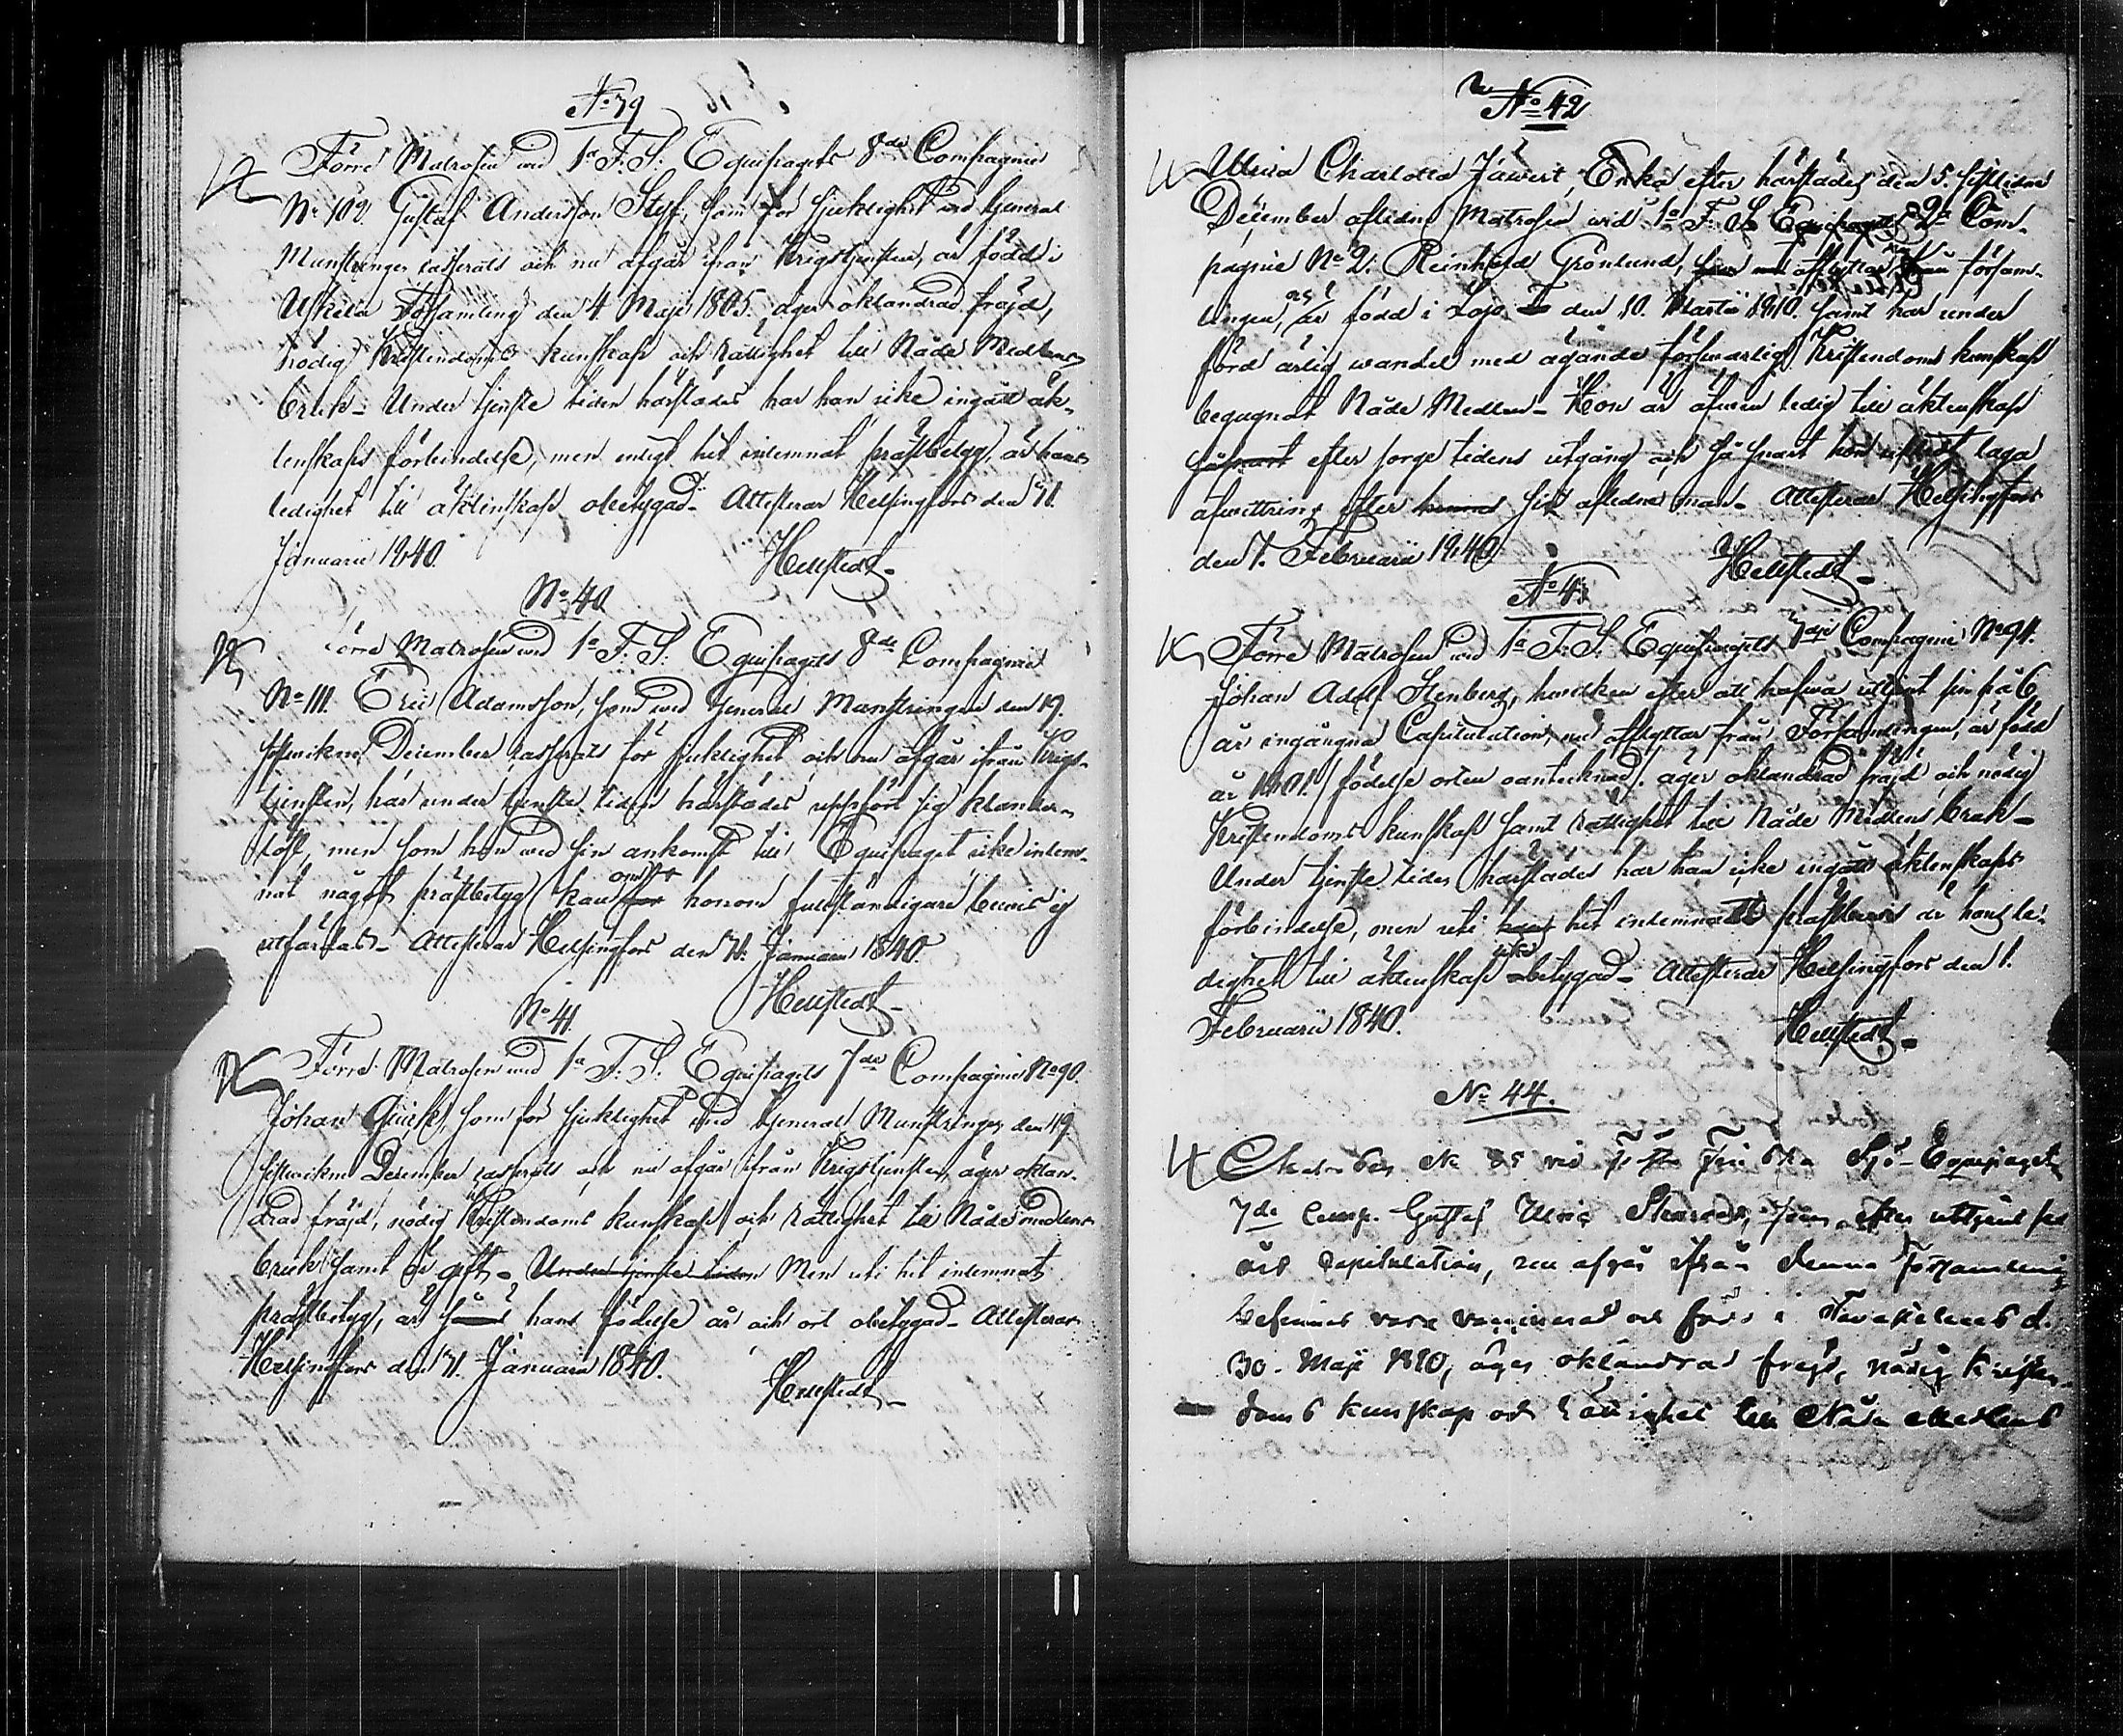 No 39
Förre Matrosen wid 1a F. S. Equipagets 8de Compagnie
No 102 Gustaf Andersson Styf, som för sjuklighet wid General
Munstringen casserats och nu afgår ifrån Krigstjensten, är född i
Uskela Församling den 4 Maji 1805, äger oklandrad fräjd,
nödig Kristendoms kunskap och rättighet till Nåde Medlens
bruk - Under tjenste tiden härstädes har han icke ingått äk-
tenskaps förbindelse, men enligt hit inlemnat prästbetyg, är hans
ledighet till äktenskap obetygad - Attesterar Helsingfors den 31.
Januarii 1840.
Hellstedt
No 40
Förre Matrosen wid 1a F. S. Equipagets 8de Compagnie
No 111. Eric Adamsson, som wid General Munstringen den 19.
sistwikne December casserats för sjuklighet och nu afgår ifrån Krigs-
tjensten, har under tjenste tiden härstädes uppfört sig klander-
löst, men som han wid sin ankomst till Equipaget icke inlem-
nat något prästbetyg kan om honom fullständigare bewis ej
utfärdas - Attesterar Helsingfors den 31. Januarii 1840.
Hellstedt
No 41.
Förre Matrosen wid 1a F. S. Equipagets 7de Compagnie No 90.
Johan Quick, som för sjuklighet wid General Munstringen den 19
sistwikne December casserats och nu afgår ifrån Krigstjensten, äger oklan-
drad fräjd, nödig Kristendoms kunskap och rättighet till Nåde medlens
bruk samt är gift - Under tjenste tiden Men uti hit inlemnat
prästbetyg, är hans födelse år och ort obetygad - Attesterar
Helsingfors den 31. Januarii 1840.
Hellstedt
No 42
Ulrica Charlotta Jäwert, Enka efter härstädes den 5. sistlidne
December aflidne Matrosen wid 1a F. S. Equipagets 2a Com-
pagnie No 2. Reinhold Grönlund, afflyttar från försam-
lingen, är född i Lojo den 10. Martii 1810. samt har under
förd ärlig wandel med ägande förswarlig Kristendoms kunskap
begagnat Nåde Medlen - Hon är äfwen ledig till äktenskap
såsnart efter sorge tidens utgång och så snart hon utstedt laga
afwittring efter sin aflidne man - Attesterar Helsingfors
den 1. Februarii 1840
Hellstedt
No 43
Förre Matrosen wid 1a F. S. Equipagets 7de Compagnie No 94.
Johan Adolf Stenberg, hwilken efter att hafwa uttjent sin på 6
år ingångna Capitulation, nu afflyttar från Församlingen, är född
år 1801 /födelse orten oantecknad/. äger oklandrad fräjd och nödig
Kristendoms kunskap samt rättighet till Nåde Medlens bruk -
Under tjenste tiden härstädes har han icke ingått äktenskaps
förbindelse, men uti hit inlemnadt prästbewis är hans le-
dighet till äktenskap icke betygad - Attesterar Helsingfors den 1.
Februarii 1840.
Hellstedt
No 44.
No 85 vid Finska Sjö-Equipagets
7de Comp. Gustaf Ulric efter uttjent sex
års Capitulation, nu afgår ifrån denna Församling
befinnes vara vaccinerad och född i Tavastehus d.
30. Maji 1810, äger oklandrad frejd, nödig Kristen-
doms kunskap och rättighet till Nåde Medlens